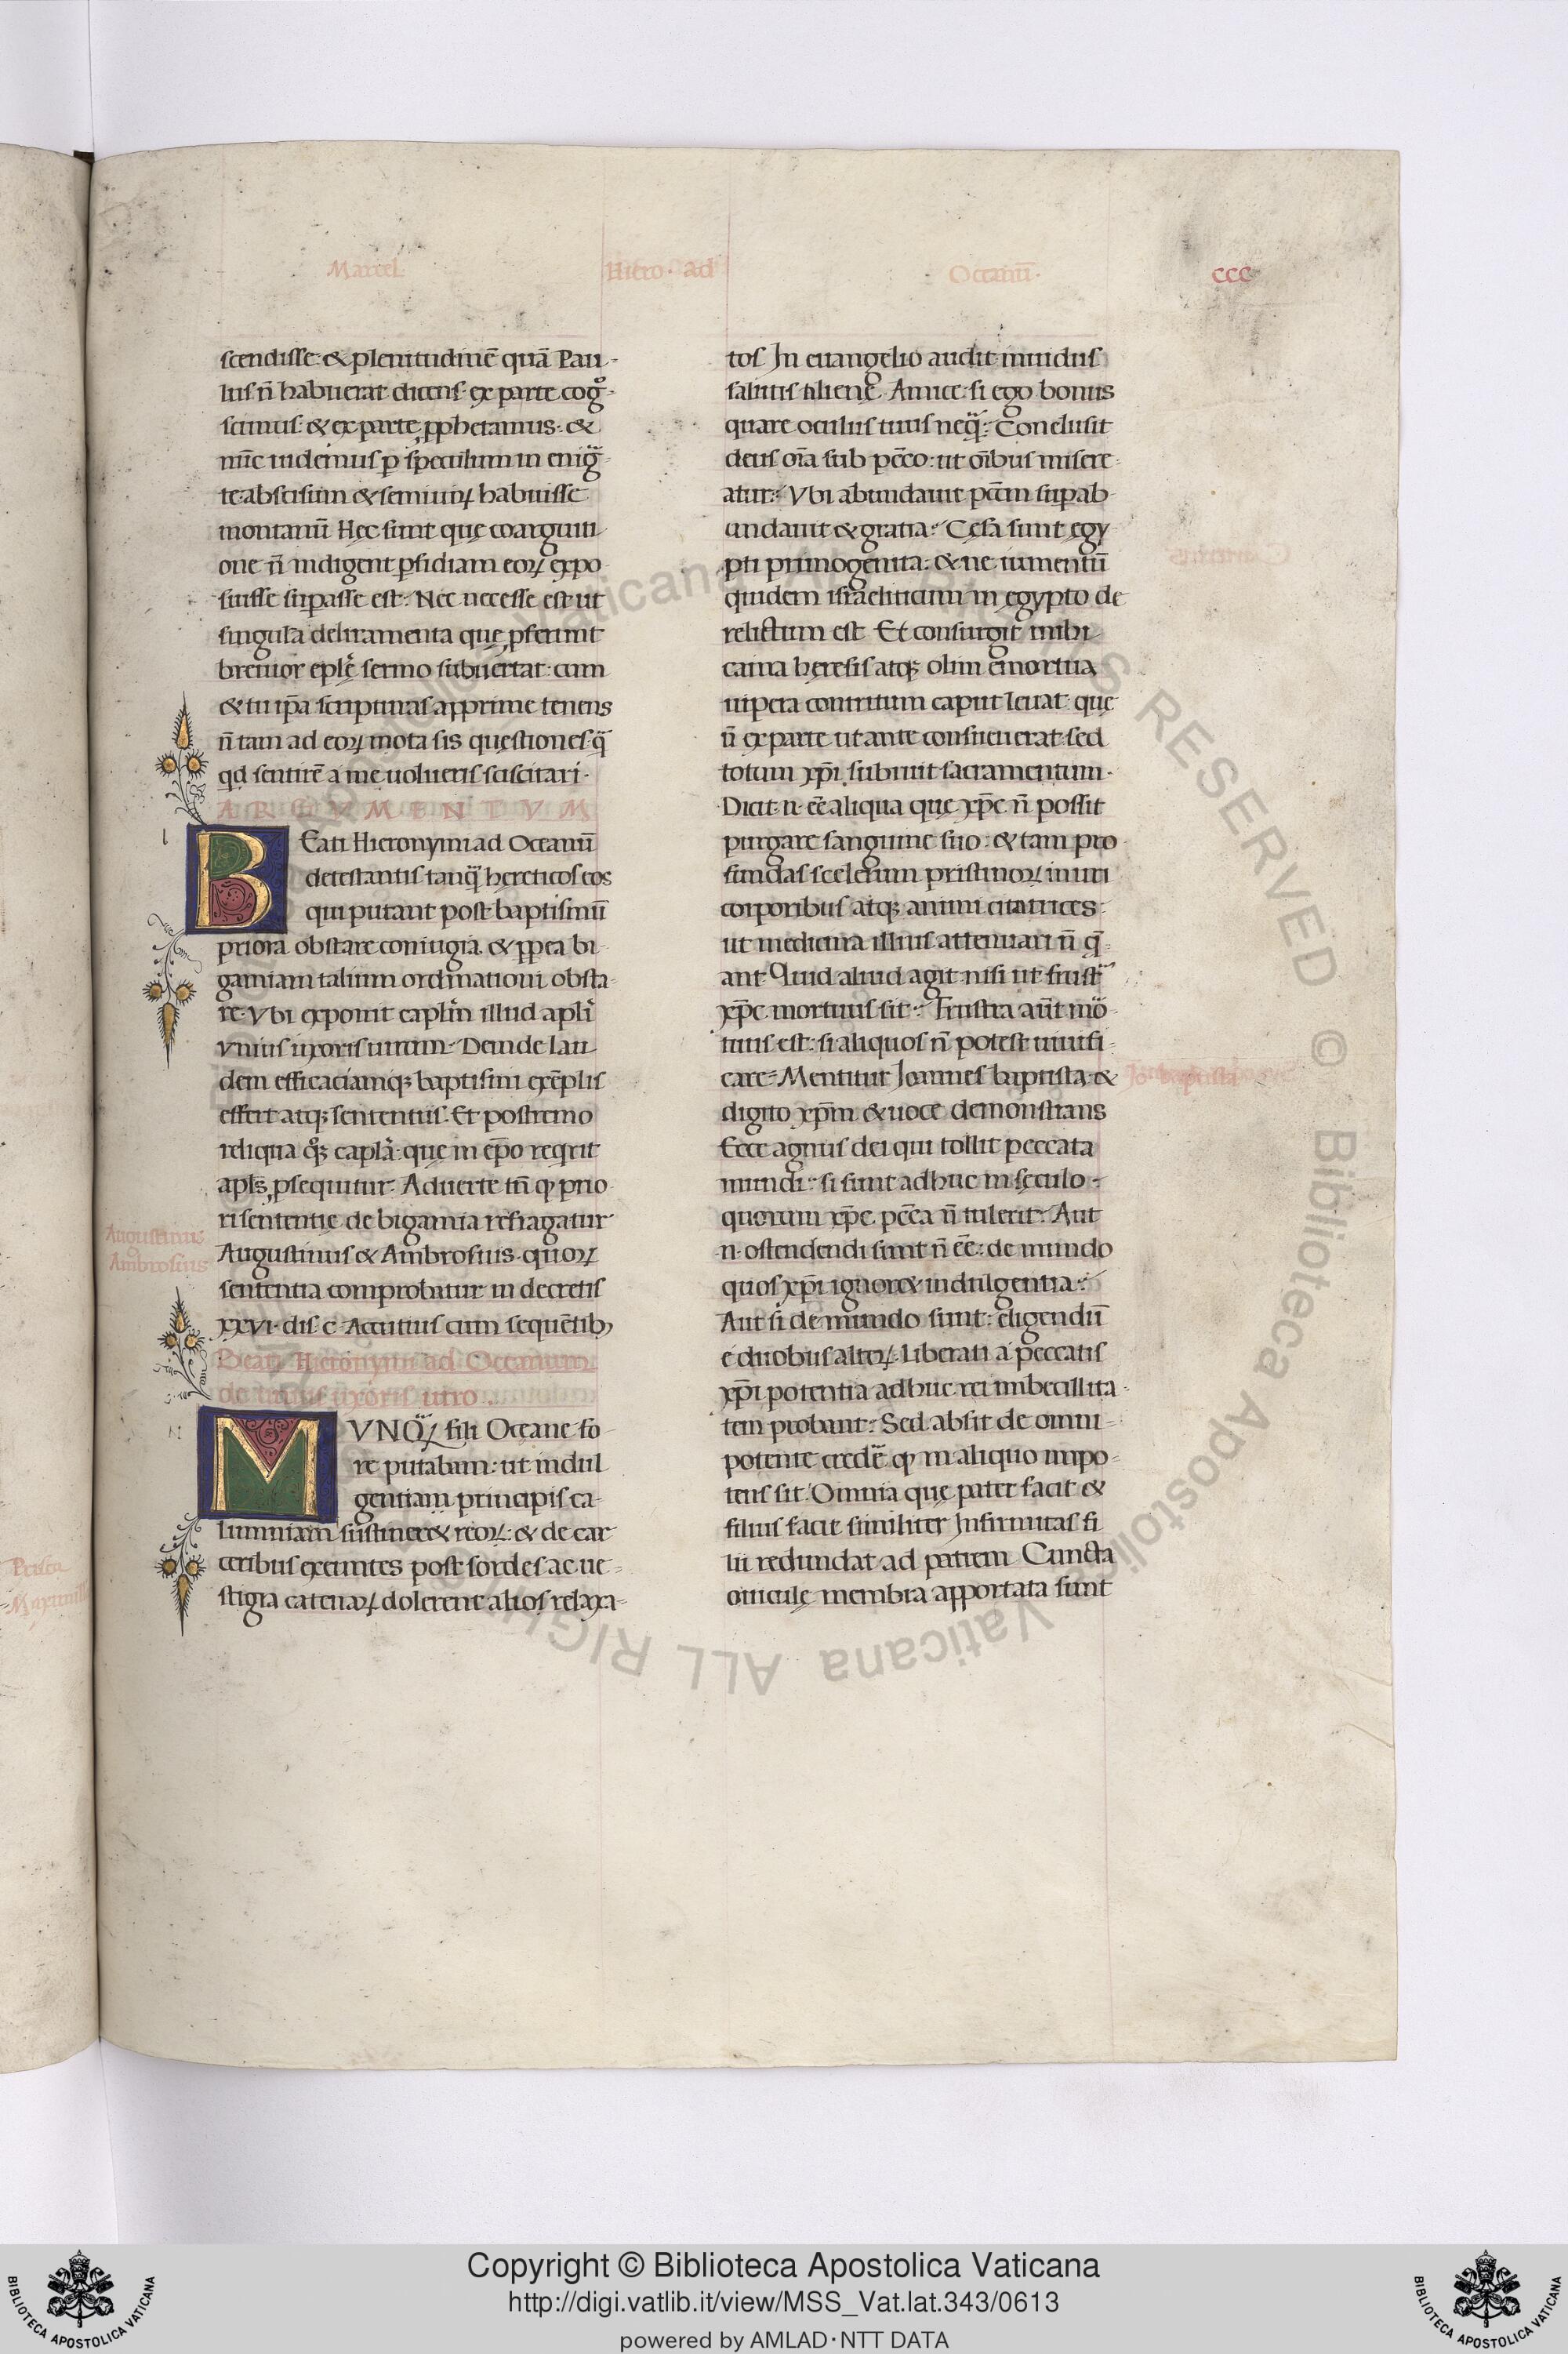 Marcel
Hiero · ad
Oceanū ·
ccc
scendisse · & plenitudinē quā Pau-
lus n̄ habuerat dicens · ex parte cogͦ-
scimus · & ex parte ꝓphetamus · &
nūc uidemus ꝑ speculum in enigᷓ-
te · abscisum & semiuiꝝ habuisse
montanū Hec sunt quę coarguiti-
one n̄ indigent ꝑfidiam eoꝝ expo-
suisse suꝑasse est · Nec necesse est ut
singula deliramenta quę ꝓferunt
breuior epl̄ę sermo subuertat · cum
& tu ip̄a scripturas apprime tenens
n̄ tam ad eoꝝ mota sis quęstiones qᷓ
qd̓ sentirē a me uolueris sciscitari ·
ARGVMENTVM
BEati Hieronymi ad Oceanū
detestantis tanqᷓ hereticos eos
qui putant post baptismū
priora obstare coniugia · & ꝓpea bi-
gamiam talium ordinationi obsta-
re · Vbi exponit capl̄m illud apl̄i
Vnius uxoris uirum · Deinde lau-
dem efficaciamqꝫ baptismi exēplis
effert atqꝫ sententiis · Et postremo
reliqua qͦqꝫ capl̄a · quę in ep̄o reqͥrit
apl̄s ꝓsequitur · Aduerte tn̄ ꝙ prio-
ri sententię de bigamia refragatur
Augustinus & Ambrosius · quoꝝ
sententia comprobatur in decretis
XXVI · dis · c · Accutius cum sequētibꝫ
Augustinus
Ambrosius
Beati Hieronymi ad Oceanum
de unius uxoris uiro ·
MVNQᷓꝝ fili Oceane fo-
re putabam · ut indul-
gentiam principis ca-
lumniam sustineret reoꝝ · & de car-
ceribus exeuntes post sordes ac ue-
stigia catenaꝝ dolerent alios relaxa-
tos In euangelio audit inuidus
salutis alienę · Amice · si ego bonus
quare oculus tuus neqᷓ · Conclusit
deus oīa sub pēco : ut oībus misere-
atur · Vbi abundauit pc̄m suꝑab-
undauit & gratia · Cęsa sunt egy-
pti primogenita : & ne iumentū
quidem israeliticum in egypto de-
relictum est Et consurgit mihi
caina heresis atqꝫ olim emortua
uipera contritum caput leuat · quę
n̄ ex parte ut ante consueuerat · sed
totum xp̄i subruit sacramentum ·
Dicit · n · eē aliqua que xp̄c n̄ possit
purgare sanguine suo : & tam pro-
fundas scelerum pristinoꝝ inuri
corporibus atqꝫ animi cicatrices :
ut medicina illius attenuari n̄ qͤ-
ant · Quid aliud agit nisi ut frustᷓ
xp̄c mortuus sit · Frustra aūt moͬ-
tuus est : si aliquos n̄ potest uiuifi-
care · Mentitur Joannes baptista · &
digito xp̄m & uoce demonstrans
Ecce agnus dei qui tollit peccata
mundi · si sunt adhuc in sęculo ·
quorum xp̄c pēca n̄ tulerit · Aut
n · ostendendi sunt n̄ eē : de mundo
quos xp̄i ignoret indulgentia ·
Aut si de mundo sunt : eligendū
e duobus alteꝝ · Liberati a peccatis
xp̄i potentia adhuc rei imbecillita-
tem probant · Sed absit de omni-
potente credē̓ ꝙ in aliquo impo-
tens sit · Omnia quę pater facit &
filius facit similiter Infirmitas fi-
lii redundat ad patrem Cuncta
ouiculę membra apportata sunt
Jo· baptista
Copyright © Biblioteca Apostolica Vaticana
http://digi.vatlib.it/view/MSS_Vat.lat.343/0613
powered by AMLAD·NTT DATA
BIBLIOTECA APOSTOLICA VATICANA
BIBLIOTECA APOSTOLICA VATICANA